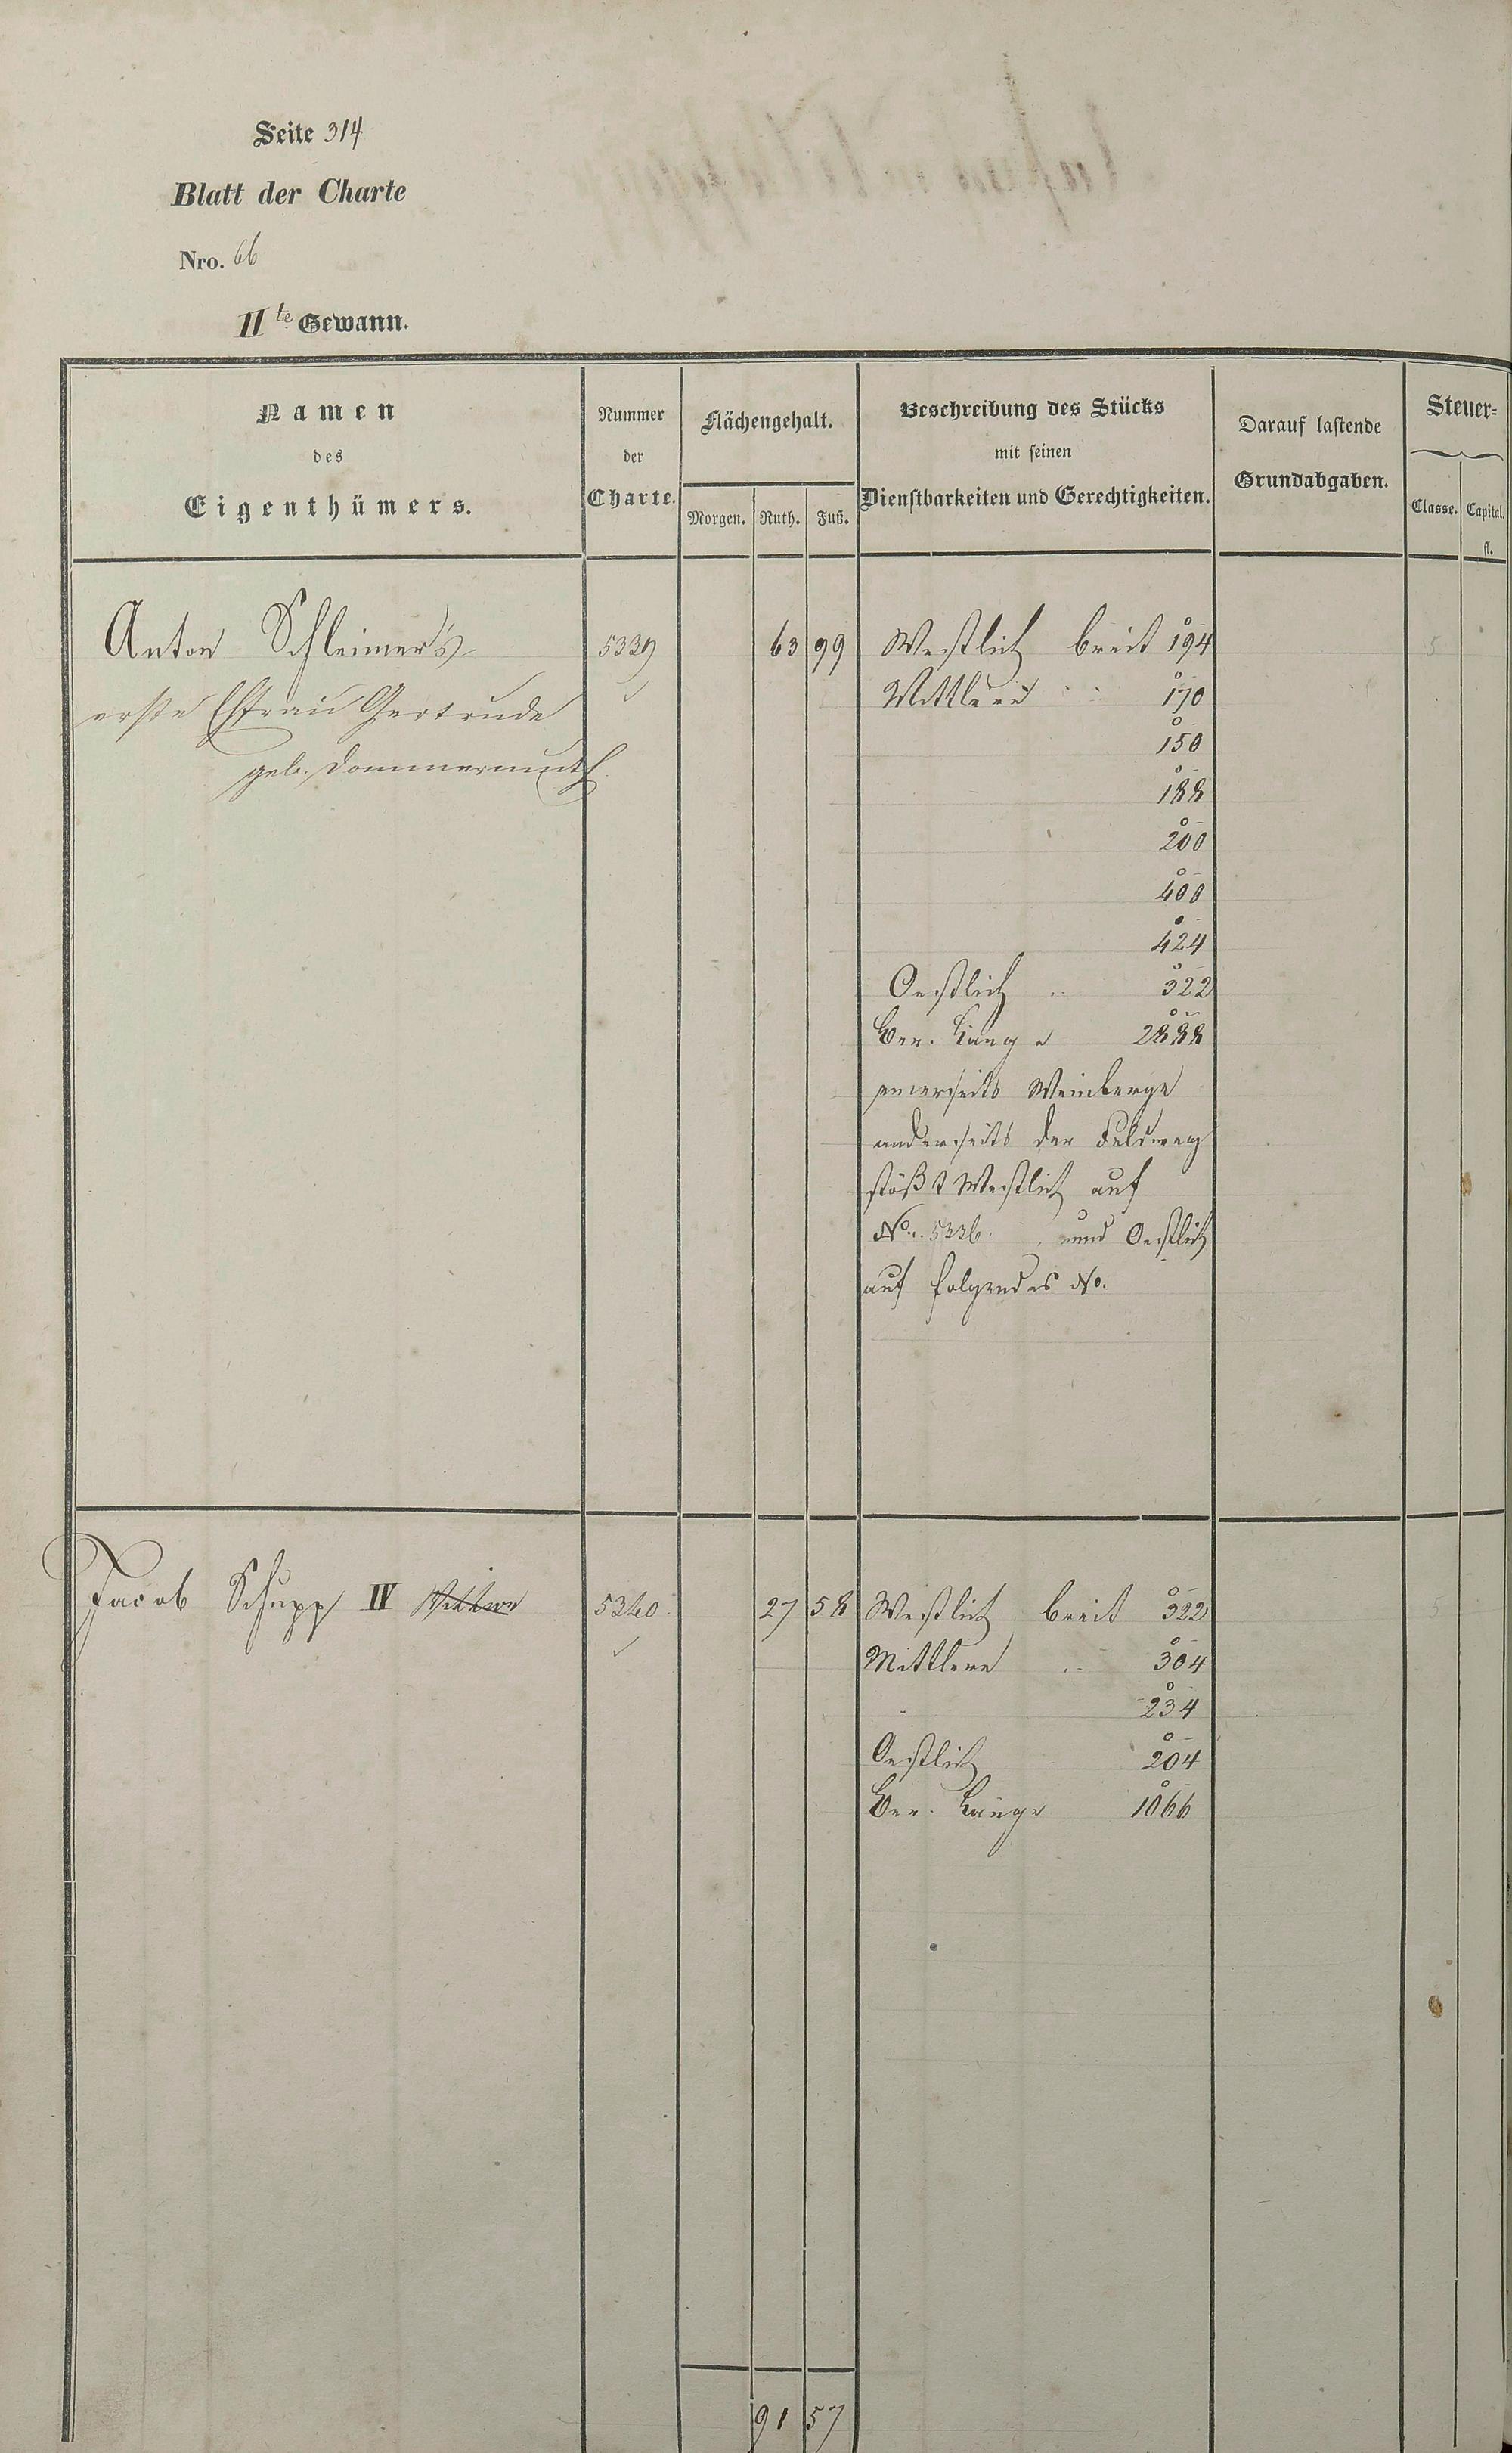 Seite 314
Blatt der Charte
Nro. 66
IIte Gewann.
Namen
des
Eigenthümers.
Nummer
der
Charte.
Flächengehalt.
Morgen. Ruth. Fuß.
Beschreibung des Stücks
mit seinen
Dienstbarkeiten und Gerechtigkeiten.
Darauf lastende
Grundabgaben.
Steuer-
Classe. Capital.
fl.
Anton Schleimer's 5339 63 99 Westlich breit 194 5
erste Ehfrau Gertrude Mittlere " 170
150
geb. Dommermuth
188
200
400
424
Oestlich " 322
Ger. Länge 2888
einerseits Weinberge
anderseits der Feldweg
stößt Westlich auf
No. 5336. und Oestlich
auf folgendes No.
Jacob Schupp IV Wittwe 5340. 27 58 Westlich breit 322 5
Mittlere " 304
234
Oestlich 204
Ger. Länge 1066
91 57